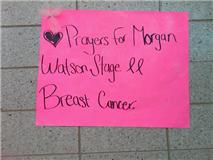 Prayers for Morgan
Watson Stage ll
Breast Cancer.